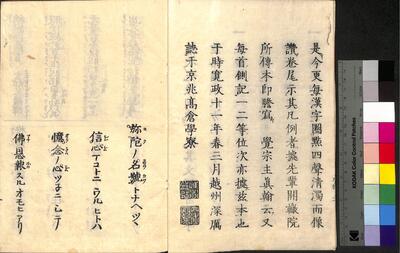 是今更每漢字圈點四聲清濁而像
讚卷尾示其凡例者據先輩開嚴院
所傳本印瞻寫 覺宗主真翰云又
每首側記一二等位次亦據茲本也
于時寛政十一年春三月越州深厲
誌于京兆高倉學寮
弥陀ノ名號トナヘツヽ
信心マコトニウルヒトハ
憶念ノ心ツネニシテ
佛恩報スルオモヒアリ